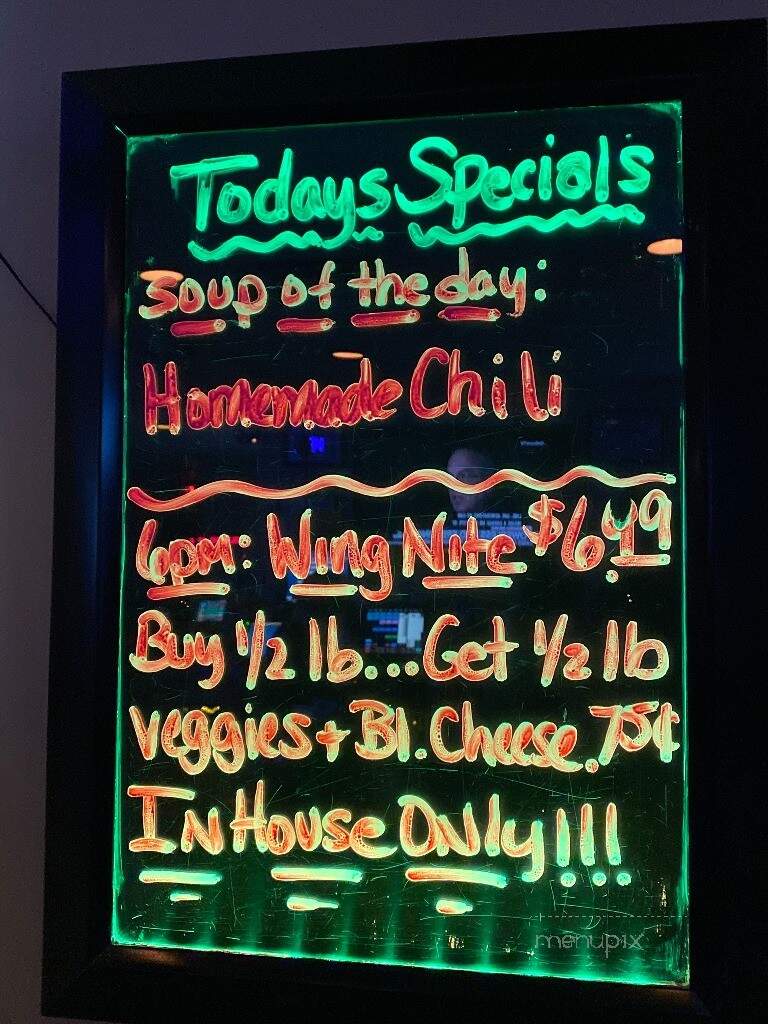 Todays Specials
Soup of the day:
Homemade Chili
6pm: Wing Nite $6.49
Buy 1/2 lb...Get 1/2 lb
Veggies + Bl. Cheese .75¢
In House Only!!!
menupix